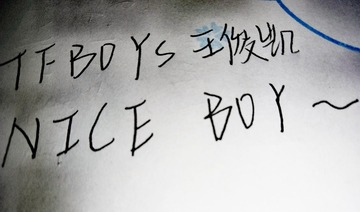 TFBOYS 王俊凯
NICE BOY~